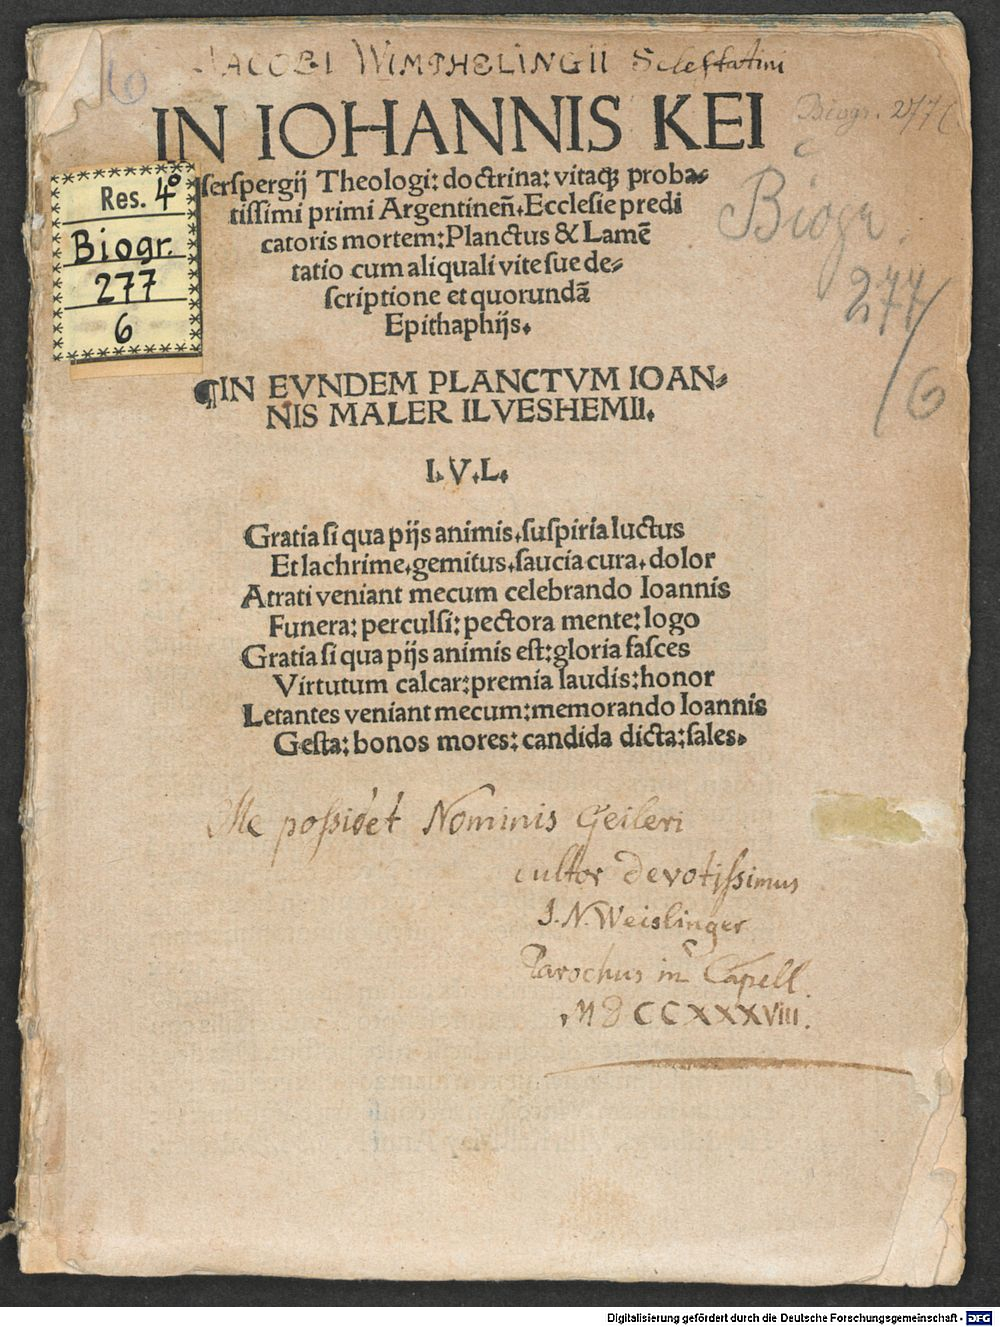 JACOBI WIMPHELINGII Selestatini
10
IN IOHANNIS KEI
serspergij Theologi: doctrina: vitaqȝ proba⸗
tissimi primi Argentineñ. Ecclesie predi
catoris mortem: Planctus & Lamẽ
tatio cum aliquali vite sue de⸗
scriptione et quorundã
Epithaphijs.
Biogr. 277/6
Biogr.
277/6
Res. 4°
Biogr.
277
6
¶IN EVNDEM PLANCTVM IOAN⸗
NIS MALER ILVESHEMII.
I. V. L.
Gratia si qua pijs animis, suspiria luctus
Et lachrime, gemitus, saucia cura, dolor
Atrati veniant mecum celebrando Ioannis
Funera: perculsi: pectora mente: logo
Gratia si qua pijs animis est: gloria fasces
Virtutum calcar: premia laudis: honor
Letantes veniant mecum: memorando Ioannis
Gesta: bonos mores: candida dicta: sales.
Me possidet Nominis Geileri
cultor devotissimus
J. N. Weislinger
Parochus in Capell.
MDCCXXXVIII.
Digitalisierung gefördert durch die Deutsche Forschungsgemeinschaft - DFG